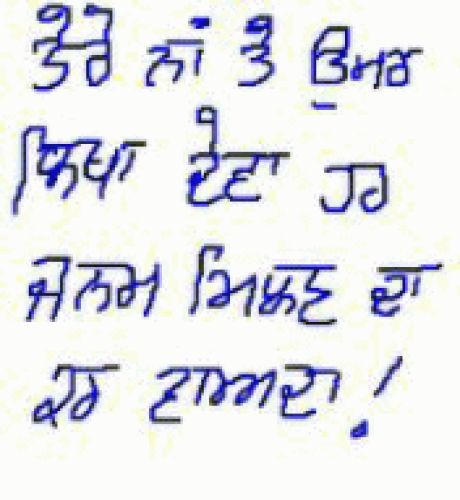 ਤੇਰੇ ਨਾਂ ਤੇ ਉਮਰ
ਲਿਖਾ ਦੇਣਾ ਹਰ
ਜੋਨਮ ਮਿਲਣ ਦਾ
ਕਰ ਵਾਅਦਾ!